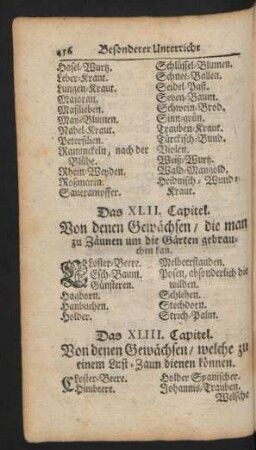 456 Besonderer Unterricht
Hasel-Wurtz.
Leber-Kraut.
Lungen-Kraut.
Majoran.
Maßlieben.
May-Blumen.
Nabel-Kraut.
Petersilien.
Ranunckeln, nach der
Blühe.
Rhein-Weyden.
Rosmarin.
Sauerampffer.
Schlüssel-Blumen.
Schnee-Ballen.
Seidel-Bast.
Seven-Baum.
Schwein-Brod.
Sinn-grün.
Trauben-Kraut.
Türckisch-Bund.
Violen.
Weiß-Wurtz.
Wald-Mangold.
Heidnisch-Wund-
Kraut.
Das XLII. Capitel.
Von denen Gewächsen / die man
zu Zäunen um die Gärten gebrau-
chen kan.
Closter-Beere.
Esch-Baum.
Günsteren.
Hagdorn.
Hanbuchen.
Holder.
Melbeerstauden.
Posen, absonderlich die
wilden.
Schlehen.
Stechdorn.
Strich-Palm.
Das XLIII. Capitel.
Von denen Gewächsen / welche zu
einem Lust-Zaun dienen können.
Closter-Beere.
Himbeere.
Holder Spanischer.
Johannis-Trauben.
Welsche